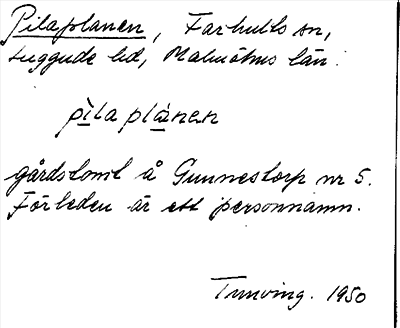 Pilaplanen, Farhults sn,
Luggude hd, Malmöhus län.
pìla plánen
gårdstomt å Gunnestorp nr 5.
Förleden är ett personnamn.
1950